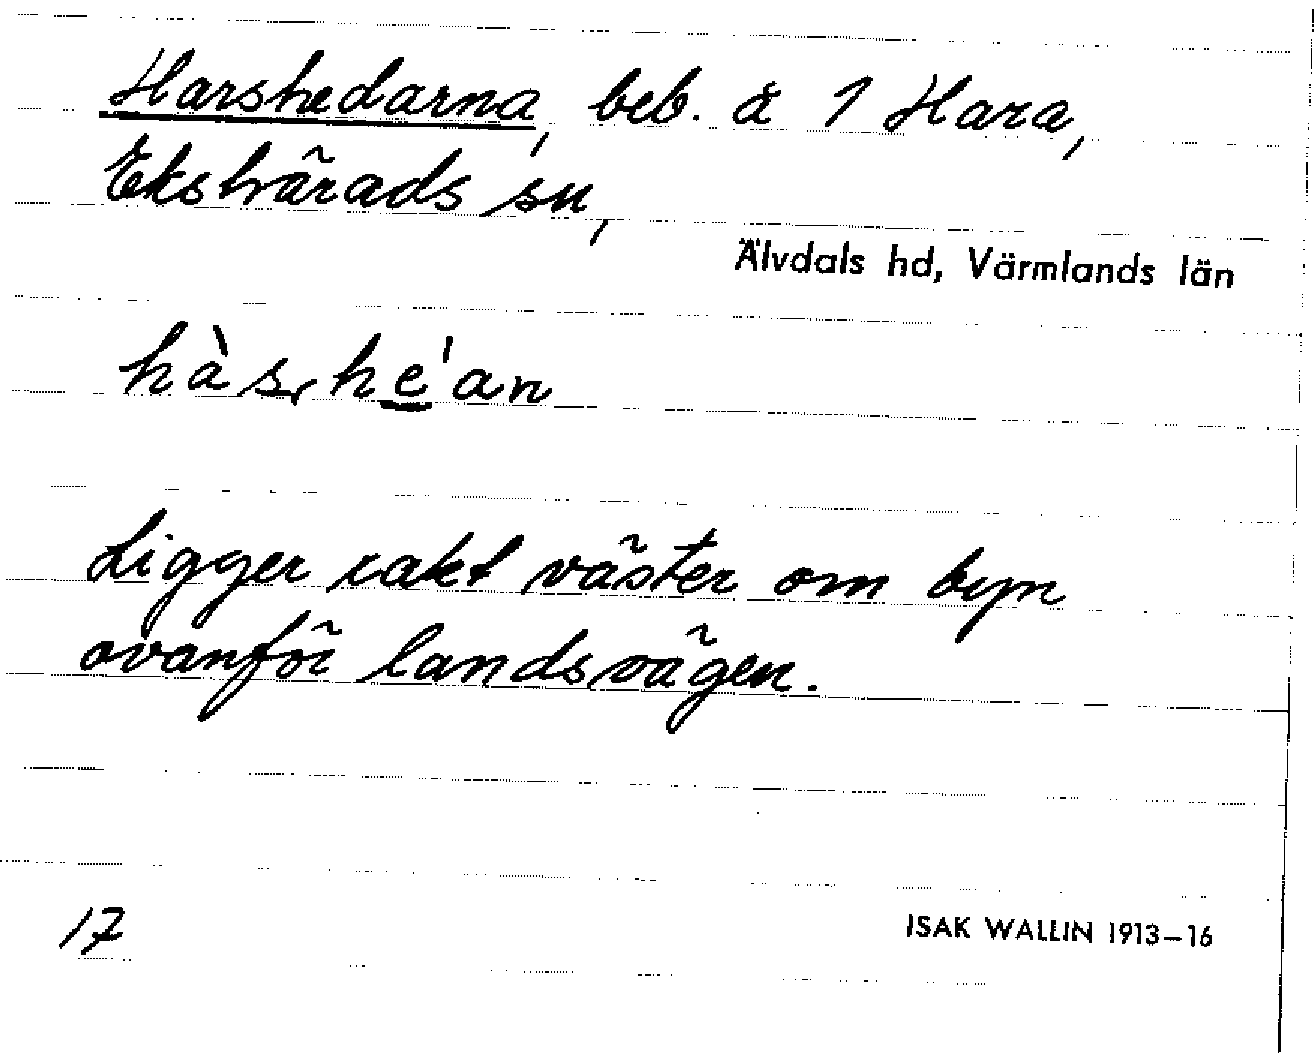 Harshedarna, beb. å 1 Hara,
Ekshärads sn,
Älvdals hd, Värmlands län
hàs,he'an
Ligger rakt väster om byn
ovanför landsvägen.
17
ISAK WALLIN 1913–16